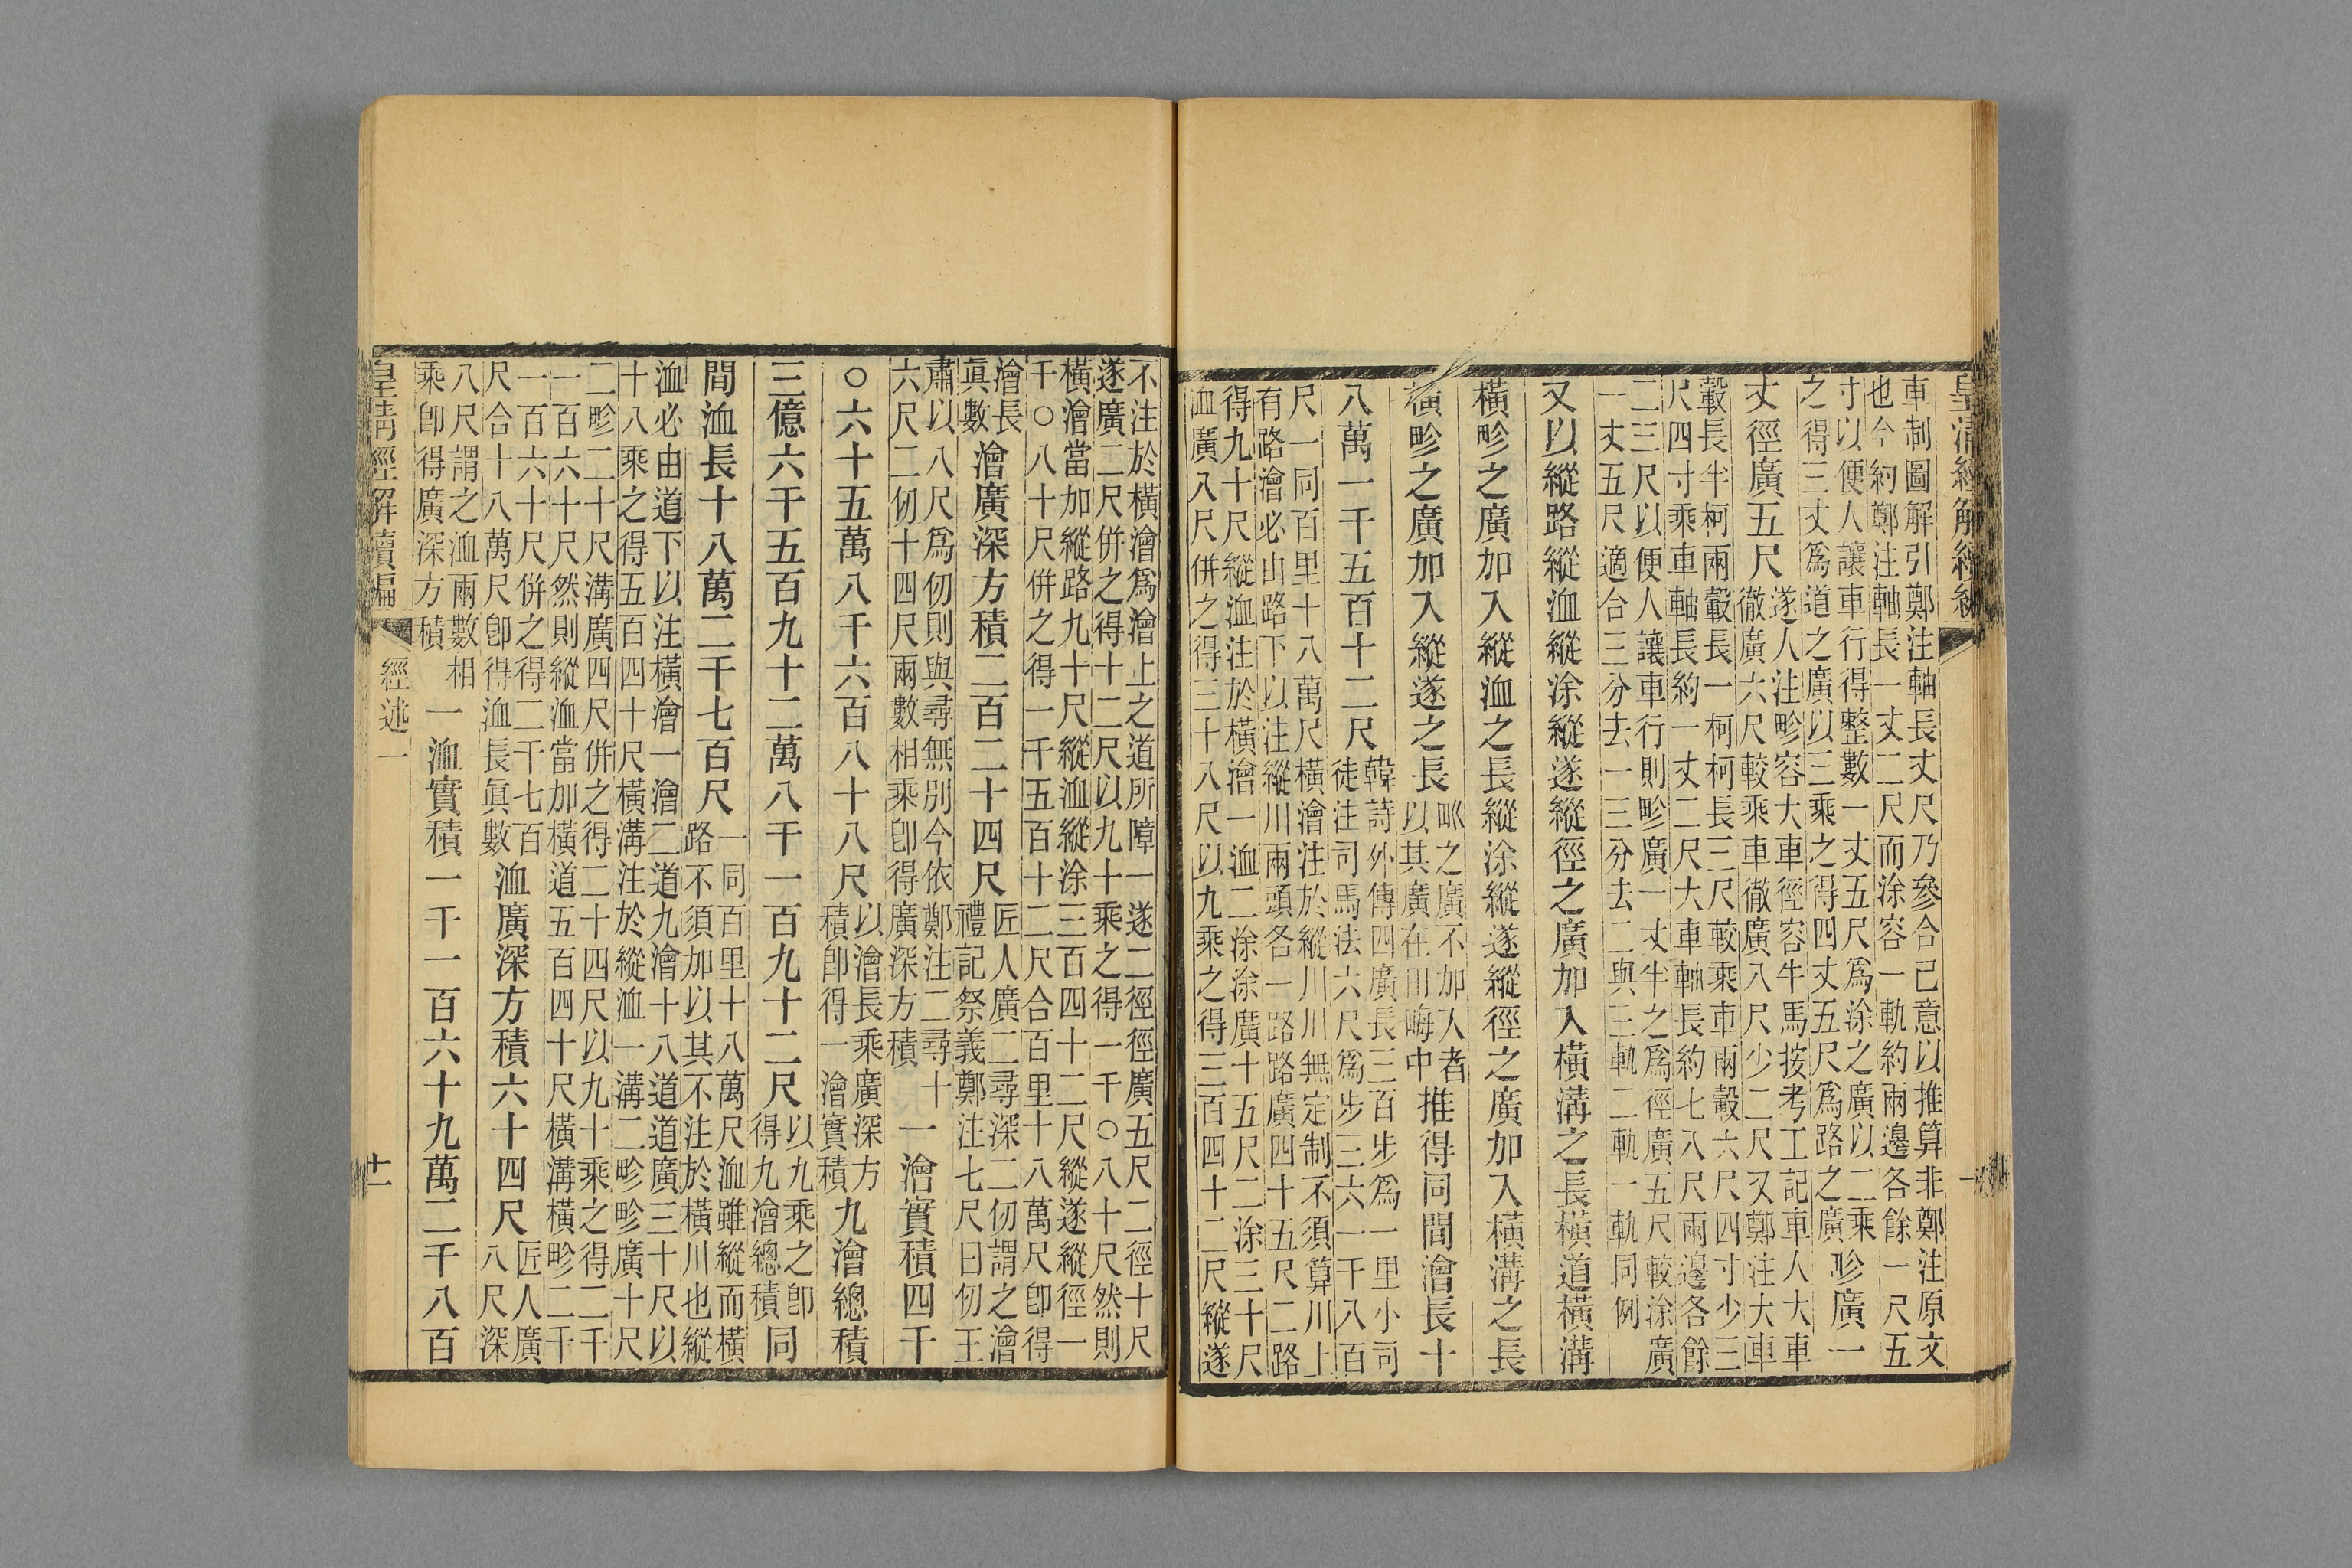 皇清經解續編
車制圖解引鄭注軸長丈尺乃參合己意以推算非鄭注原文
也今約鄭注軸長一丈二尺而涂容一軌約兩邊各餘一尺五
寸以便人讓車行得整數一丈五尺爲涂之廣以二乘
之得三丈爲道之廣以三乘之得四丈五尺爲路之廣
畛廣一
丈徑廣五尺
遂人注畛容大車徑容牛馬按考工記車人大車
徹廣六尺較乘車徹廣八尺少二尺又鄭注大車
轂長半柯兩轂長一柯柯長三尺較乘車兩轂六尺四寸少三
尺四寸乘車軸長約一丈二尺大車軸長約七八尺兩邊各餘
二三尺以便人讓車行則畛廣一丈半之爲徑廣五尺較涂廣
一丈五尺適合三分去一三分去二與三軌二軌一軌同例
又以縱路縱洫縱涂縱遂縱徑之廣加入橫溝之長橫道橫溝
橫畛之廣加入縱洫之長縱涂縱遂縱徑之廣加入橫溝之長
橫畛之廣加入縱遂之長
畎之廣不加入者
以其廣在田畮中
推得同間澮長十
八萬一千五百十二尺
韓詩外傳四廣長三百步爲一里小司
徒注司馬法六尺爲步三六一千八百
尺一同百里十八萬尺橫澮注於縱川川無定制不須算川上
有路澮必由路下以注縱川兩頭各一路路廣四十五尺二路
得九十尺縱洫注於橫澮一洫二涂涂廣十五尺二涂三十尺
洫廣八尺併之得三十八尺以九乘之得三百四十二尺縱遂
不注於橫澮爲澮上之道所障一遂二徑徑廣五尺二徑十尺
遂廣二尺併之得十二尺以九十乘之得一千〇八十尺然則
橫澮當加縱路九十尺縱洫縱涂三百四十二尺縱遂縱徑一
千〇八十尺併之得一千五百十二尺合百里十八萬尺卽得
澮長
眞數
澮廣深方積二百二十四尺
匠人廣二尋深二仞謂之澮
禮記祭義鄭注七尺曰仞王
肅以八尺爲仞則與尋無別今依鄭注二尋十
六尺二仞十四尺兩數相乘卽得廣深方積
一澮實積四千
〇六十五萬八千六百八十八尺
以澮長乘廣深方
積卽得一澮實積
九澮總積
三億六千五百九十二萬八千一百九十二尺
以九乘之卽
得九澮總積
同
間洫長十八萬二千七百尺
一同百里十八萬尺洫雖縱而橫
路不須加以其不注於橫川也縱
洫必由道下以注橫澮一澮二道九澮十八道道廣三十尺以
十八乘之得五百四十尺橫溝注於縱洫一溝二畛畛廣十尺
二畛二十尺溝廣四尺併之得二十四尺以九十乘之得二千
一百六十尺然則縱洫當加橫道五百四十尺橫溝橫畛二千
一百六十尺併之得二千七百
尺合十八萬尺卽得洫長眞數
洫廣深方積六十四尺
匠人廣
八尺深
八尺謂之洫兩數相
乘卽得廣深方積
一洫實積一千一百六十九萬二千八百
皇清經解續編
經述一
十一